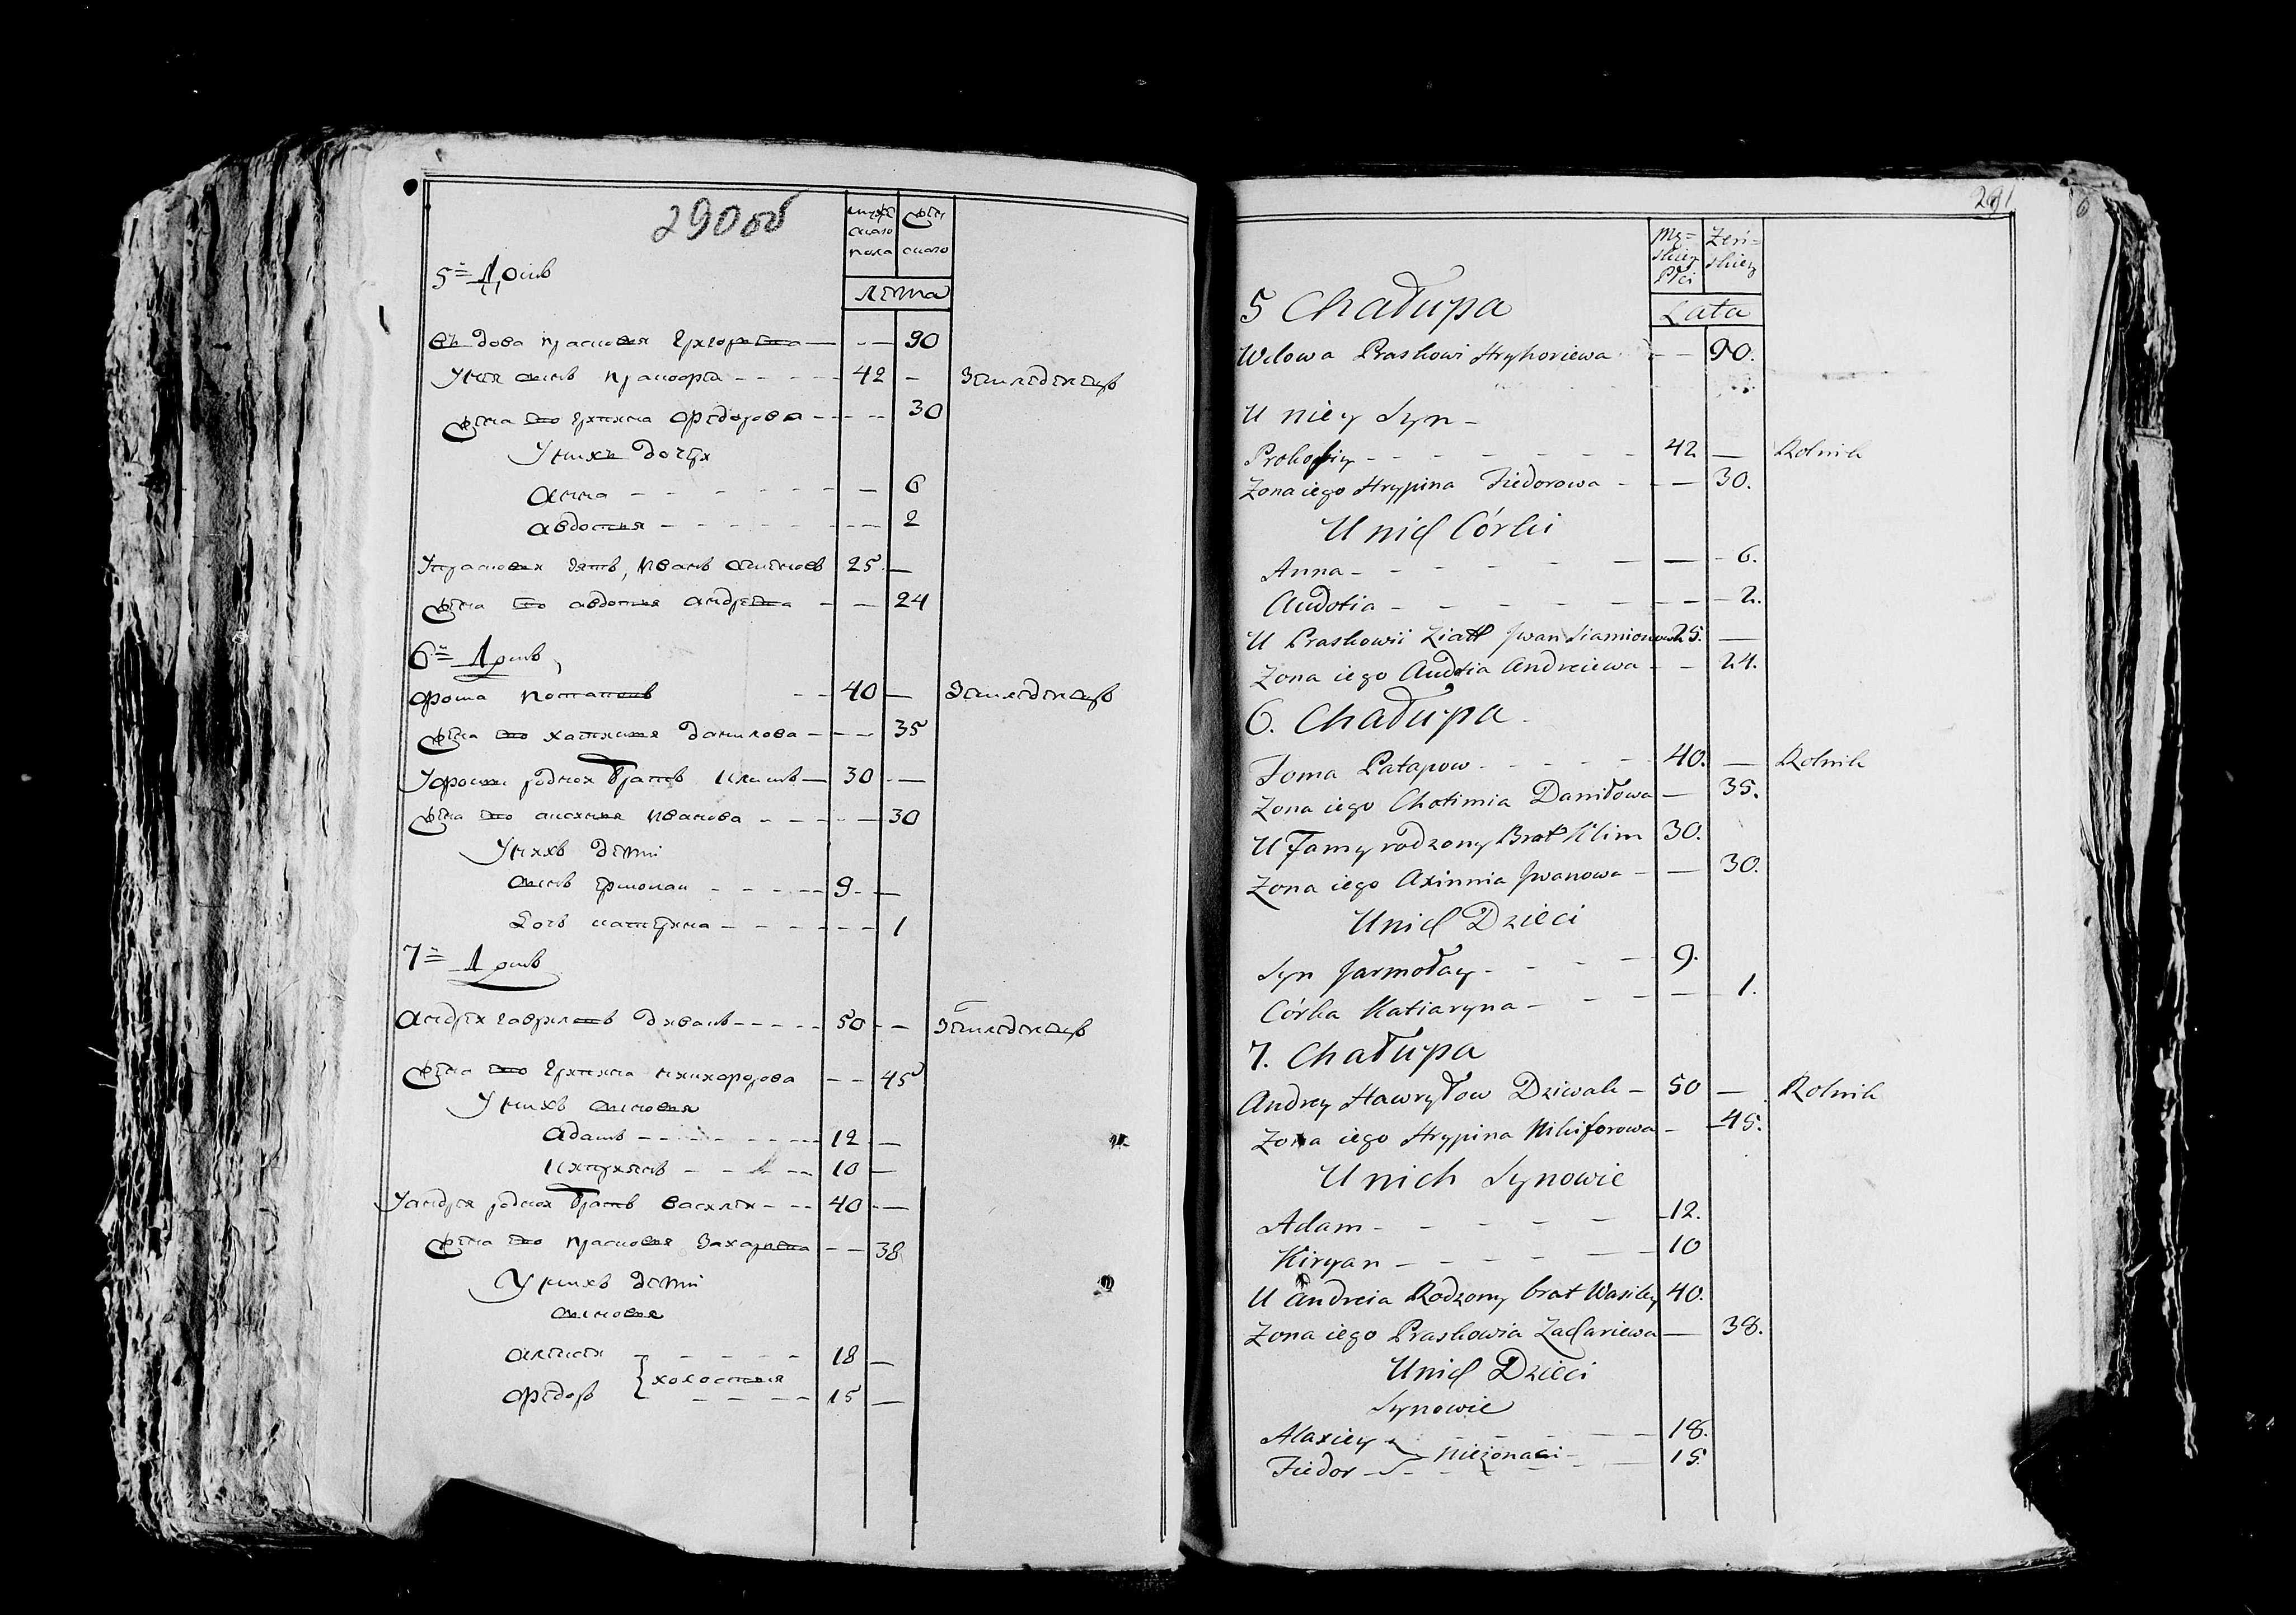 290 об
мужескаго пола
женскаго
лѣта
5-й Домъ
въдова прасковия григорьева — 90
У нея сынъ прокофей 42 — Земледелецъ
жена его грипина федорова 30
У них дочери
анна 6
авдотия 2
У прасковии зять, иванъ симионов 25 —
жена его авдотия андреева 24
6-й Домъ
фома потаповъ 40 — Земледелецъ
жена его хатиния данилова 35
У фомы родной братъ климъ 30 —
жена его аксиния иванова 30
У нихъ дети
сынъ ермолаи 9 —
дочь катерина 1
7-й Домъ
андрей гаврилов дивакъ 50 — Земледелецъ
жена его грипина никифорова 45
У нихъ сыновья
адамъ 12 —
киприянъ 10 —
У андрея родной братъ василей 40 —
жена его прасковия захарьева 38
У нихъ дети
сыновья
алексей 18 —
холостыя
федоръ 15 —
291
Męskiey Płci
Żeńskiey
Lata
5 Chałupa
Wdowa Praskowi Hryhoriewa — 90.
U niey Syn
Prokofiy 42 — Rolnik
Zona iego Hrypina Fiedorowa — 30.
U nich Córki
Anna — 6.
Audotia — 2.
U Praskowii Ziatt Jwan Siamionowi 25. —
Zona iego Audotia Andreiewa — 24.
6. Chałupa
Foma Patapow 40. — Rolnik
Zona iego Chotimia Daniłowa — 35.
U Famy rodzony Brat Klim 30.
Zona iego Axinnia Jwanowa — 30.
U nich Dzieci
Syn Jarmołay 9.
Córka Katiaryna — 1.
7. Chałupa
Andrey Hawryłow Dziwak 50 — Rolnik
Zona iego Hrypina Nikiforowa — 45.
U nich Synowie
Adam 12.
Kiryan 10
U Andreia Rodzony brat Wasiley 40.
Zona iego Praskowia Zachariewa — 38.
U nich Dzieci
Synowie
Alaxiey 18.
nieżonaci
Fiedor 15